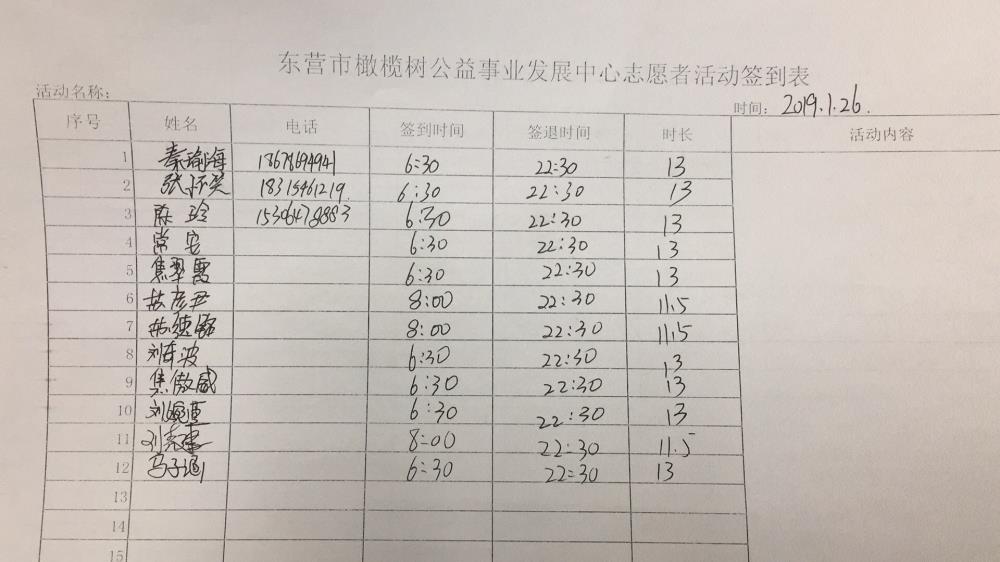 东营市橄榄树公益事业发展中心志愿者活动签到表
活动名称: 时间: 2019.1.26.
序号 姓名 电话 签到时间 签退时间 时长 活动内容
1 秦瑜海 18678694941 6:30 22:30 13
2 张怀英 18315461219 6:30 22:30 13
3 陈玲 15306478883 6:30 22:30 13
4 常安 6:30 22:30 13
5 焦翠霞 6:30 22:30 13
6 彦尹 8:00 22:30 11.5
7 8:00 22:30 11.5
8 刘东波 6:30 22:30 13
9 焦傲威 6:30 22:30 13
10 刘 6:30 22:30 13
11 刘 8:00 22:30 11.5
12 冯子涵 6:30 22:30 13
13
14
15